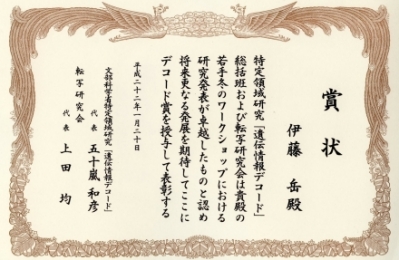 賞状
伊藤 岳殿
特定領域研究「遺伝情報デコード」
総括班および転写研究会は貴殿の
若手冬のワークショップにおける
研究発表が卓越したものと認め
将来更なる発展を期待してここに
デコード賞を授与して表彰する
平成二十二年一月二十日
文部科学省特定領域研究「遺伝情報デコード」
代表 五十嵐 和彦
転写研究会
代表 上田 均